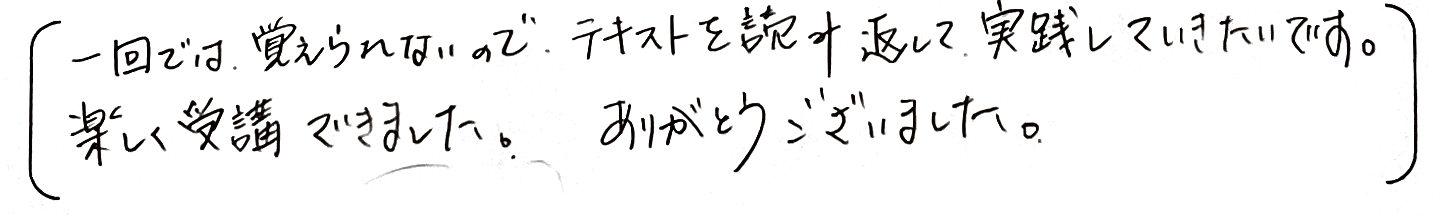 一回では、覚えられないので、テキストを読み返して、実践していきたいです。
楽しく受講できました。 ありがとうございました。